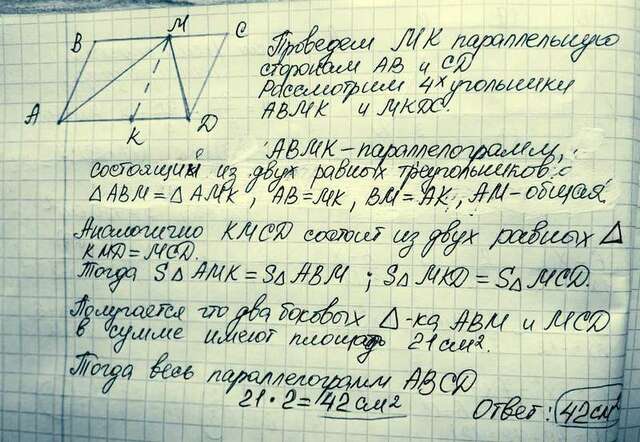 B M C
A K D
Проведем МК параллельную
сторонам АВ и CD
Рассмотрим 4х угольники
АВМК и МКDC.
АВМК – параллелограмм,
состоящий из двух равных треугольников:
△ABM = △AMK, AB=MK, BM=AK, AM-общая
Аналогично KMCD состоит из двух равных △
KMD = MCD.
Тогда S△AMK = S△ABM ; S△MKD = S△MCD.
Получается что два боковых △-ка ABM и MCD
в сумме имеют площадь 21 см².
Тогда весь параллелограмм ABCD
21 · 2 = 42 см²
Ответ: 42 см²